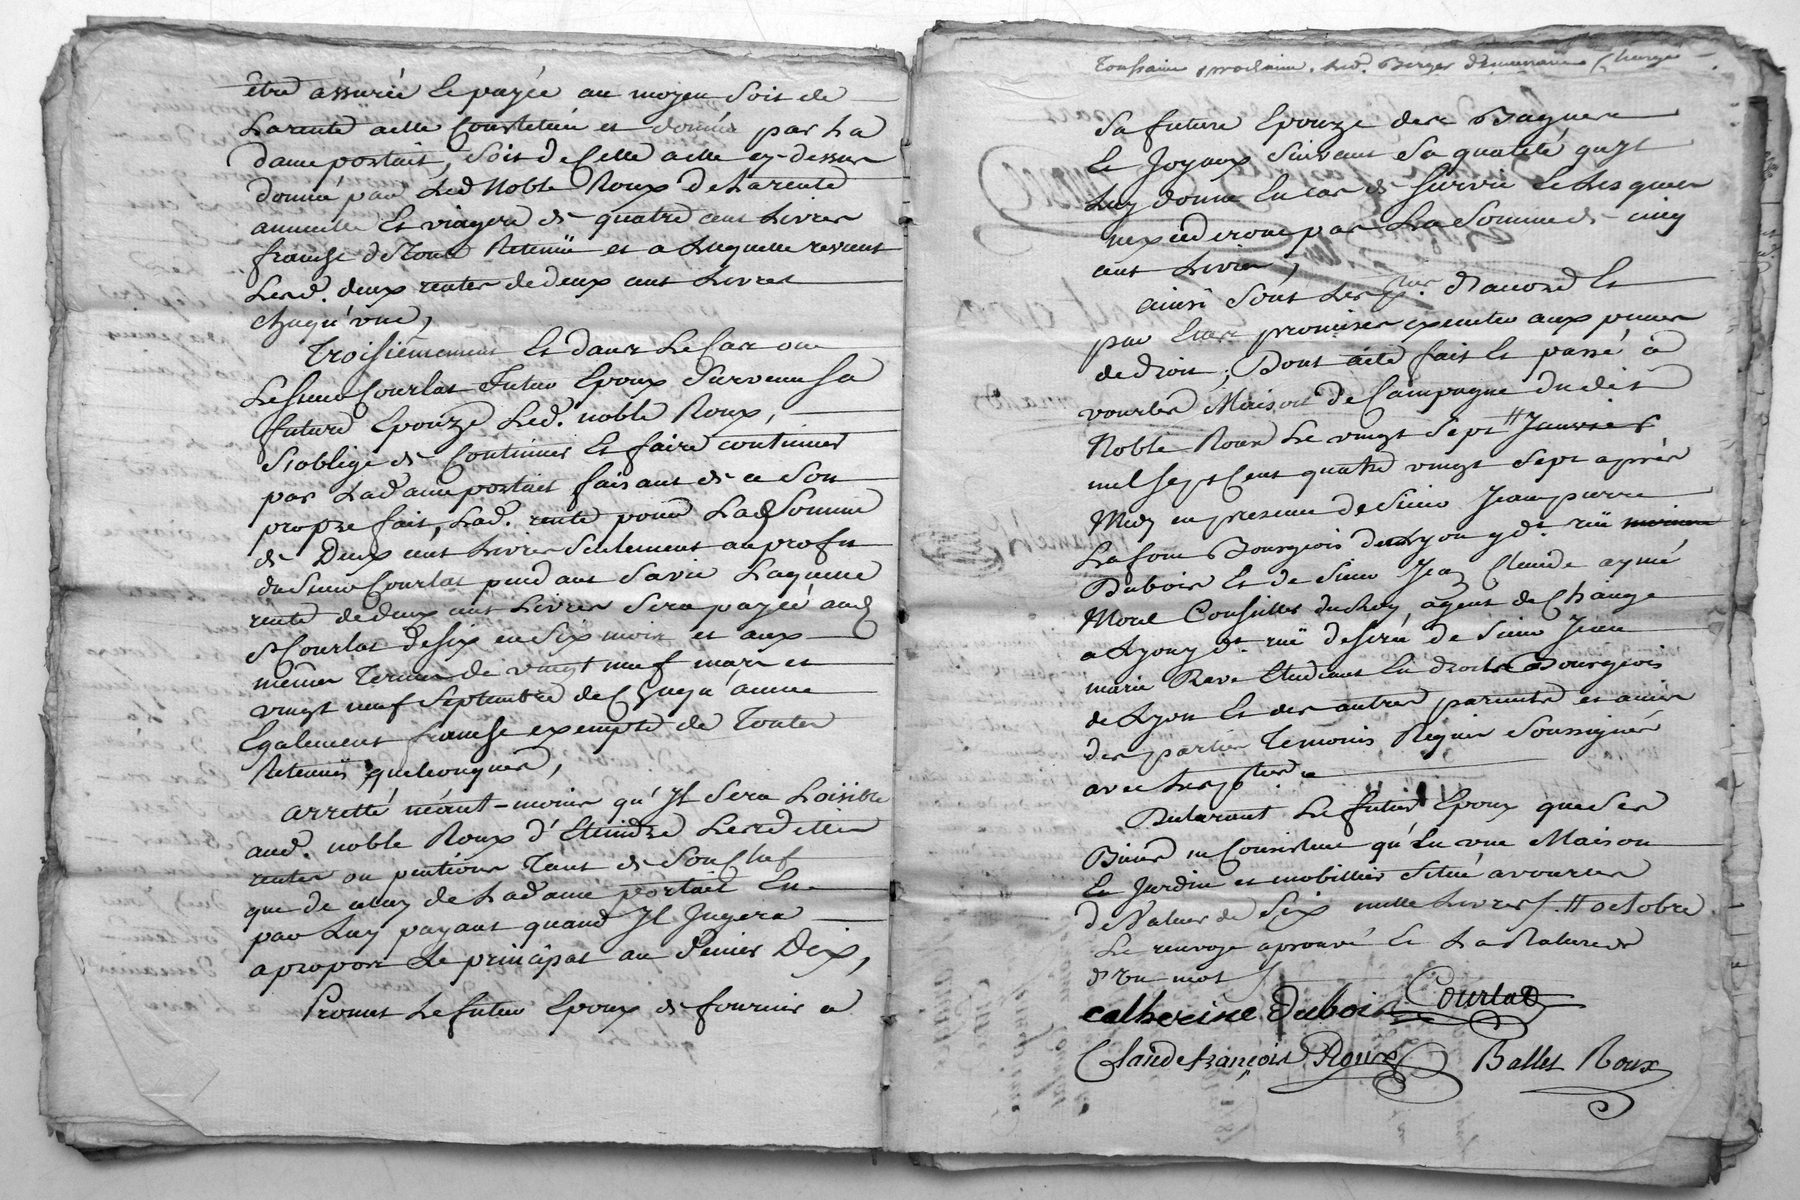 être assurée et payée au moyen soit de
la rente a elle constituée et donnée par la
dame portait, soit de celle a elle cy-dessus
donnée par led noble Roux de la rente
annuelle et viagere de quatre cent livres
franche de toute retenüe et a laquelle revient
lesd. deux rentes de deux cent livres
chaqu'une,
Troisiemement et dans le cas ou
le sieur Courlat futur epoux survecut sa
future epouze led. noble Roux,
s'oblige de continuer et faire continuer
par lad dame portait faisant de ce son
propre fait, lad. rente pour lad somme
de deux cent livres seulement au profit
du sieur Courlat pendant sa vie laquelle
rente de deux cent livres sera payée aud
sr Courlat de six en six mois et aux
mêmes termes de vingt neuf mars et
vingt neuf septembre de chaqu'année
egalement franche exempte de toutes
retenües quelconques,
arretté néant-moins qu'il sera loisible
aud. noble Roux d'eteindre lesdittes
rentes ou pentions tant de son chef
que de celuy de lad dame portait en
par luy payant quand il jugera
a propos le principal au denier dix,
Promet le futur epoux de fournir a
Toussaint prochain. led. Berger charge
sa future epouze des bagues
et joyaux suivant sa qualité qu'il
luy donne en cas de survie et lesquels
n'exederont pas la somme de cinq
cent livres,
ainsi sont les pties d'accord et
par elles promises executer aux peines
de droit; Dont acte fait et passé à
vourles Maison de Campagne dudit
Noble Roux le vingt sept // Janvier
mil sept cent quatre vingt sept après
Midy en presence de sieur Jean pierre
Lafont Bourgeois de Lyon y dt. rüe
Dubois et de sieur Jean Claude aymé
Morel Conseiller du Roy, agent de Change
a Lyon y dt. rüe desirée de sieur Jean
marie Rave Etudiant en droit Bourgeois
de Lyon et des autres parents et amis
des parties temoins requis soussignés
avec les pties
Declarant le futur epoux que ses
Biens ne consistent qu'en une Maison
et Jardin et mobillier situé a vourles
de valeur de six mille livres /. // octobre
le renvoye aprouvé et la rature
d'un mot
catherine Dubois Courlat
Claude françois Roux Ballet Roux